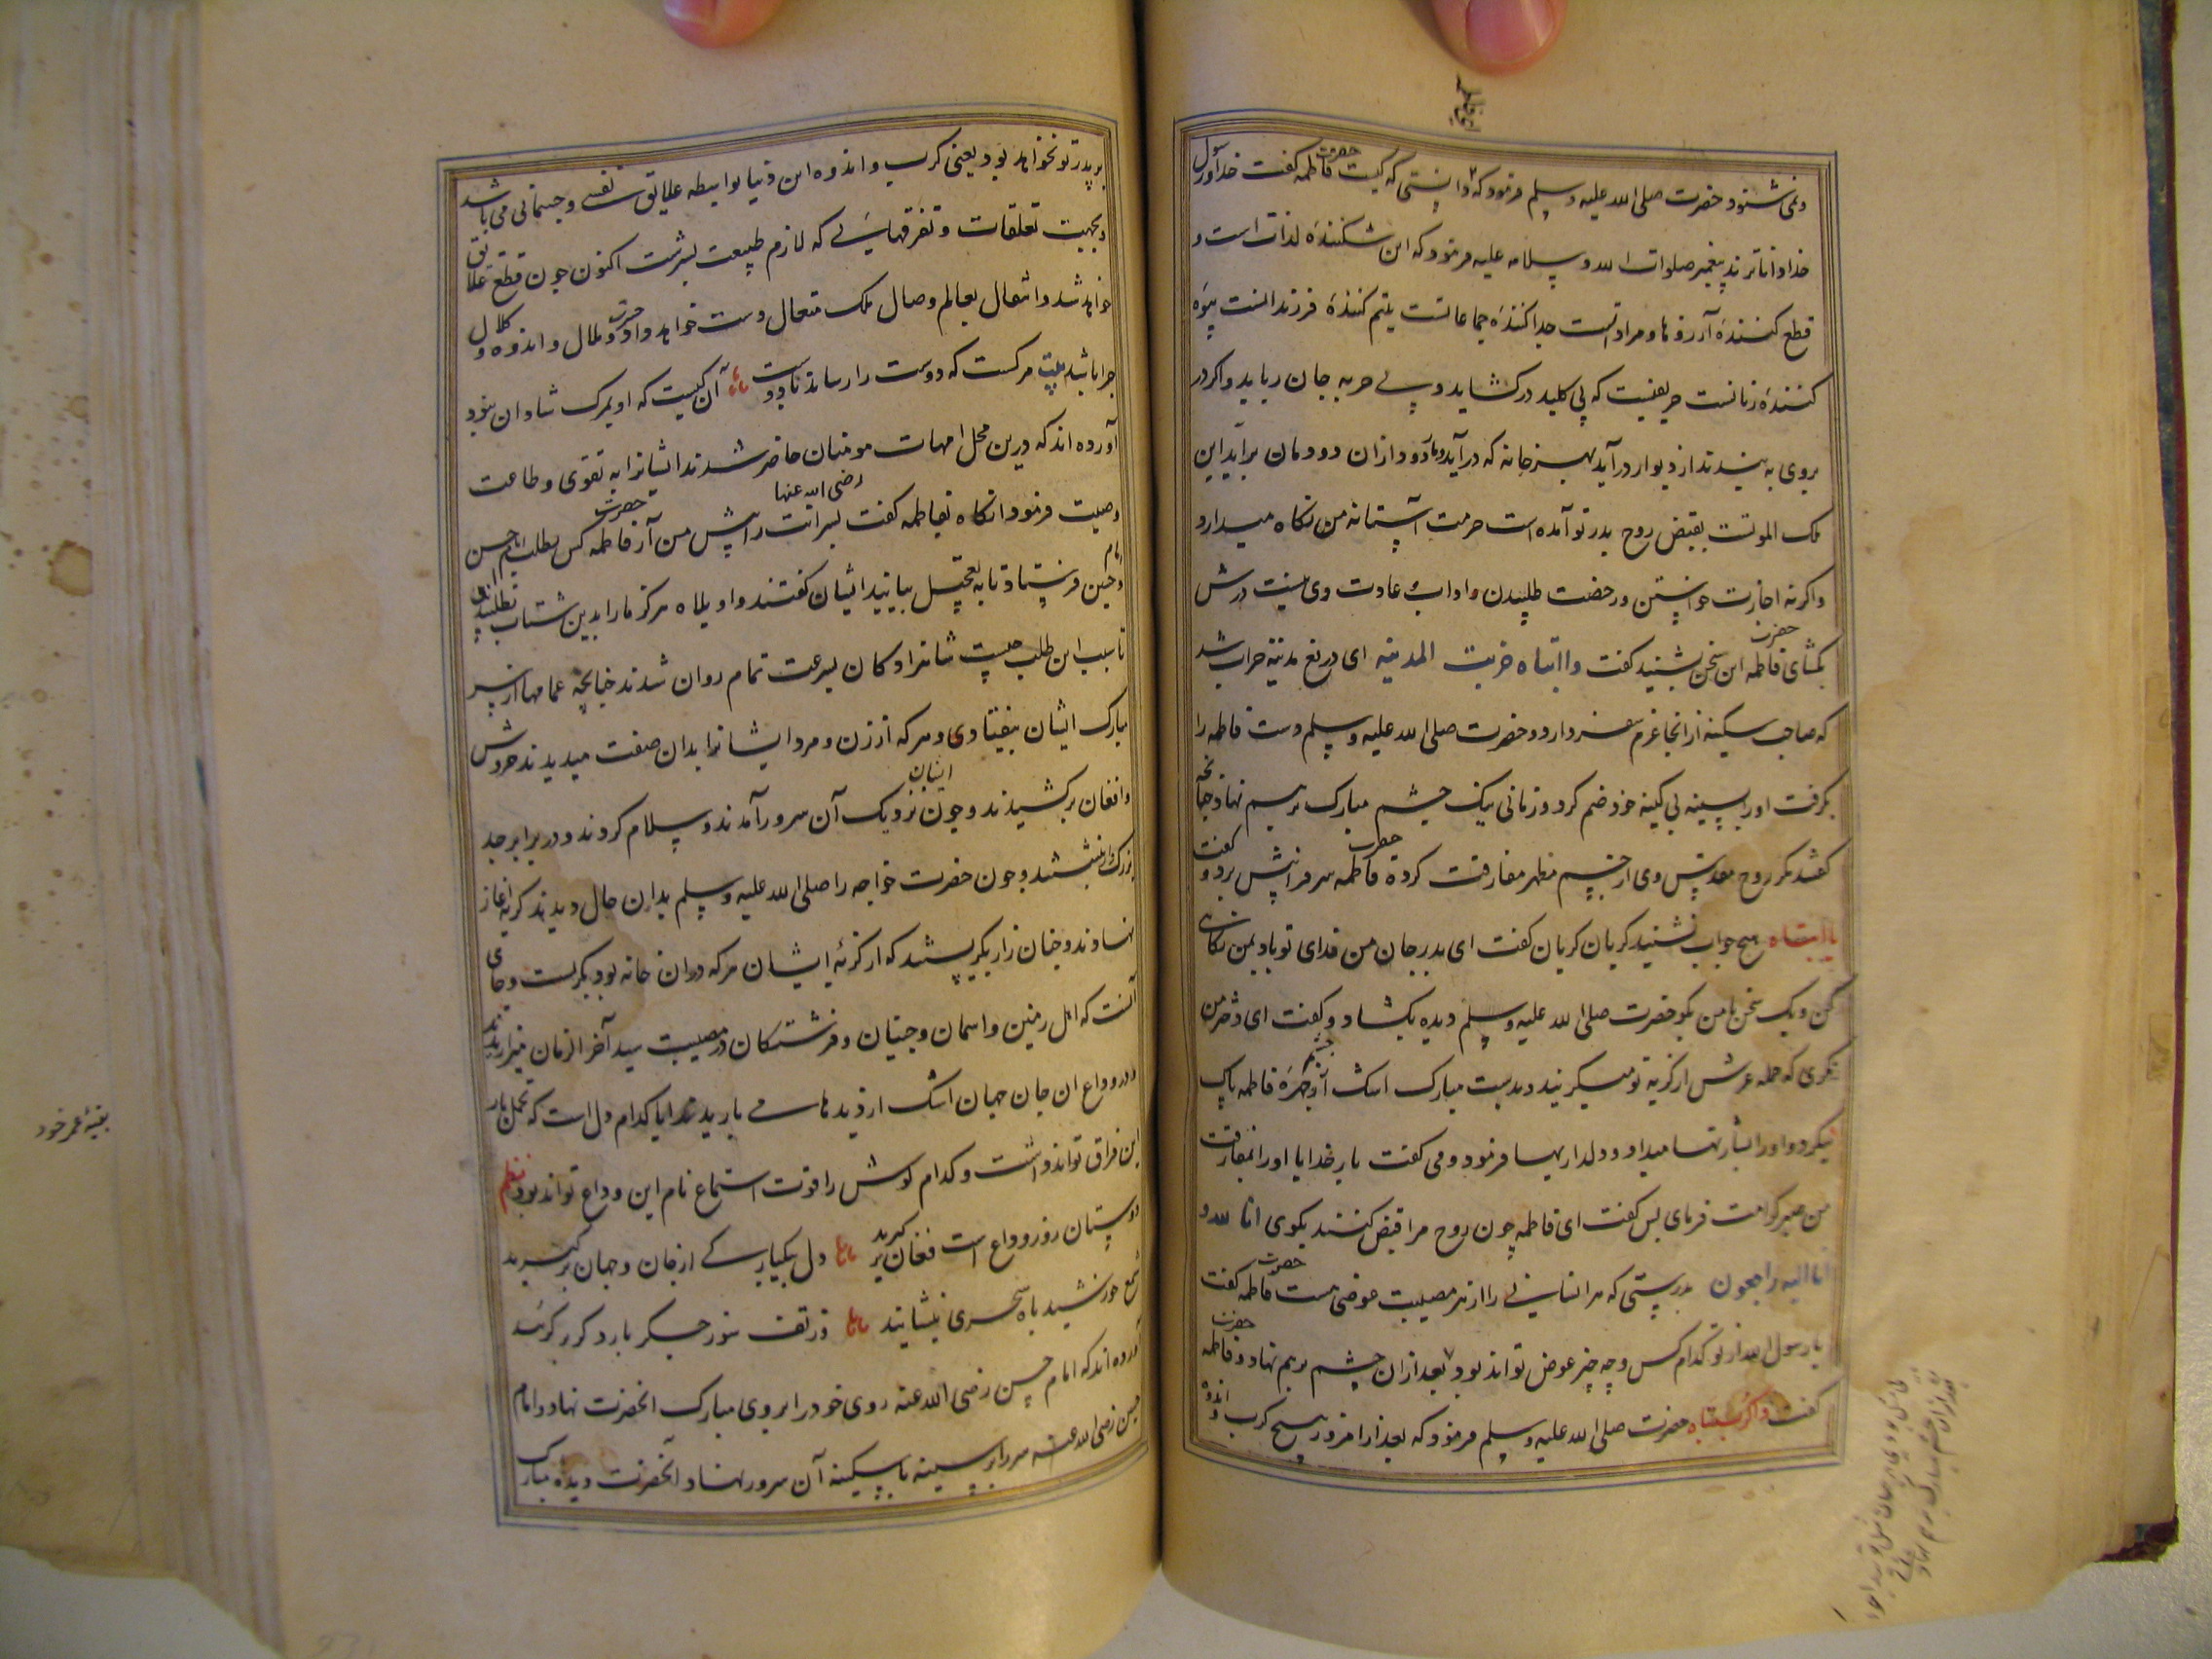 ونمی شنود حضرت صلی الله علیه وسلم فرمود که دانستی که کیست حضرت فاطمه کفت خدا ورسول
خدا داناترند پیغمبر صلوات الله وسلامه علیه فرمود که این شکنندهٔ لذات است و
قطع کنندهٔ آرزوها و مرادتست جدا کنندهٔ جماعاتست یتیم کنندهٔ فرزندانست بیوه
کنندهٔ زنانست حریفیست که بی کلید در کشاید وبی حربه جان رباید واکر در
بروی به بندند از دیوار درآید بهر خانه که درآید دمار ودود ازان دودمان برآید این
ملک الموتست بقبض روح پدر تو آمده است حرمت آستانه من نکاه میدارد
واکرنه اجازت خواستن ورخصت طلبیدن وادب عادت وی نیست درش
بکشای حضرت فاطمه این سخن بشنید کفت وا ابتاه خربت المدینه ای دریغ مدینه خراب شد
که صاحب سکینه از انجا عزم سفر دارد وحضرت صلی الله علیه وسلم دست فاطمه را
بکرفت اورا بسینه بی کینه خود ضم کرد وزمانی نیک چشم مبارک برهم نهاد چنانچه
کفتند مکر روح مقدس وی از جسم مطهر مفارقت کرده حضرت فاطمه سر فرا پیش برد و کفت
یا ابتاه هیچ جواب نشنید کریان کریان کفت ای پدر جان من فدای تو باد بمن نکاهی
کن ویک سخن با من بکو حضرت صلی الله علیه وسلم دیده بکشاد و کفت ای دختر من
مکری که حمله عرش از کریه تو میکریند وبدست مبارک اشک از چهرهٔ فاطمه پاک
میکرد و اورا بشارتها میداد ودلداریها فرمود ومی کفت بار خدایا اورا بمفارقت
من صبر کرامت فرمای پس کفت ای فاطمه چون روح مرا قبض کنند بکوی انا لله و
انا الیه راجعون بدرستی که هر انسانی را از هر مصیبت عوضی هست حضرت فاطمه کفت
یا رسول الله از تو کدام کس وچه چیز عوض تواند بود بعد ازان چشم برهم نهاد و حضرت فاطمه
کفت واکربتاه حضرت صلی الله علیه وسلم فرمود که بعد از امروز هیچ کرب و اندوه
بر پدر تو نخواهد بود یعنی کرب واندوه این دنیا بواسطه علایق نفسی وجسمانی می باشد
وبجهت تعلقات وتفرقهایی که لازم طبیعت بشریست اکنون چون قطع علایق
خواهد شد وانتقال بعالم وصال ملک متعال دست خواهد داد حزن وملال واندوه وکلال
چرا باشد بیت مرکست که دوست را رساند بادوست آن کیست که او بمرک شادان نبود
آورده اند که درین محل امهات مومنان حاضر شدند ایشانرا به تقوی وطاعت
وصیت فرمود وانکاه بفاطمه رضی الله عنها کفت پسرانت را پیش من آر حضرت فاطمه کس بطلب امام حسن
و امام حسین فرستاد تا به تعجیل بیایند ایشان کفتند واویلاه هرکز ما را بدین شتاب نطلبیده
تا سبب این طلب چیست شاهزادکان بسرعت تمام روان شدند چنانچه عمامها از سر
مبارک ایشان بیفتادی وهرکه از زن ومرد ایشانرا بدان صفت میدیدند خروش
وافغان برکشیدند وچون ایشان نزدیک آن سرور آمدند وسلام کردند ودر برابر جد
بزرکوار بنشستند وچون حضرت خواجه را صلی الله علیه وسلم بدان حال دیدند کریه آغاز
نهادند وچنان زار بکریستند که از کریهٔ ایشان هرکه دران خانه بود بکریست وجای
آنست که اهل زمین واسمان وجنیان وفرشتکان در مصیبت سید آخر الزمان
ودر وداع آن جان جهان اشک از دیده ها می باریدند ایا کدام دل است که تحمل بار
این فراق تواند داشت وکدام کوش را قوت استماع نام این وداع تواند بود نظم
دوستان روز وداع است فغان برکیرید دل بیکبارکی از جان وجهان برکیرید
شمع خورشید باه سحری بنشانید وز تف سوز جکر بار دکر برکیرید
آورده اند که امام حسن رضی الله عنه روی خود را بر روی مبارک انحضرت نهاد وامام
حسین رضی الله عنه سر را بر سینه با سکینه آن سرور نهاد وآنحضرت دیده مبارک
بقیهٔ عمر خود